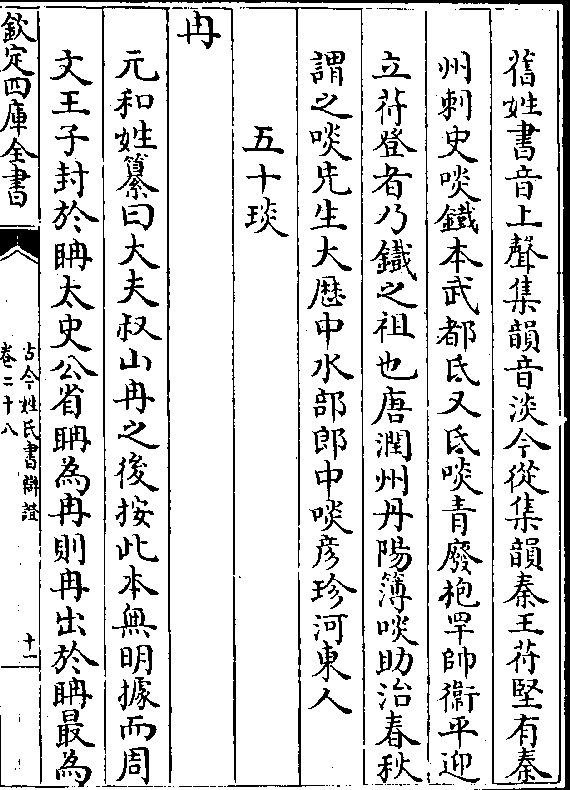 舊姓書音上聲集韻音淡今從集韻秦王苻堅有秦
州刺史啖鐵本武都氐又氐啖青廢枹罕帥衛平迎
立苻登者乃鐵之祖也唐潤州丹陽簿啖助治春秋
謂之啖先生大厯中水部郎中啖彦珍河東人
五十琰
冉
元和姓纂曰大夫叔山冉之後按此本無明據而周
文王子封於聃太史公省聃為冉則冉出於聃最為
欽定四庫全書
古今姓氏書辯證
卷二十八
十一